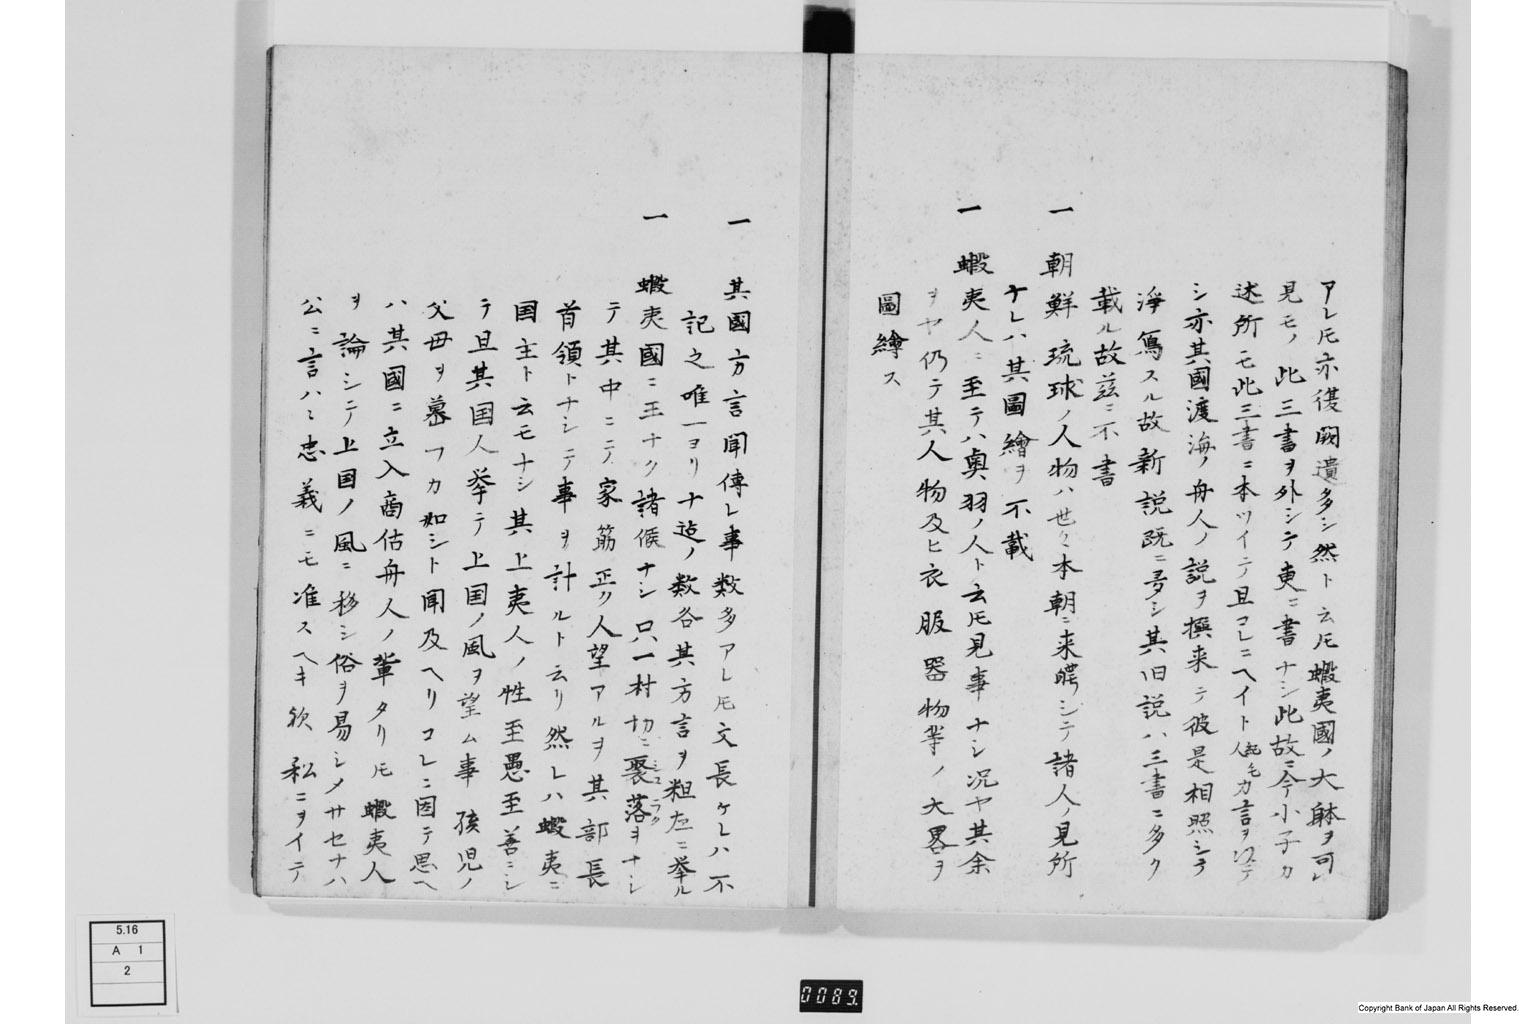 アレ𪜈亦復闕遺多シ然ト云𪜈蝦夷國ノ大躰ヲ可レ
見モノ此三書ヲ外シテ更ニ書ナシ此故ニ今小子カ
述所モ此三書ニ本ツイテ且コレニヘイト人カ言ヲ以テ
シ亦其國渡海ノ舟人ノ説ヲ撰来テ彼是相照シテ
淨寫スル故新説既ニ多シ其旧説ハ三書ニ多ク
載ル故茲ニ不書
一 朝鮮琉球ノ人物ハ世々本朝ニ来聘シテ諸人ノ見所
ナレハ其圖繪ヲ不載
一 蝦夷人ニ至テハ奥羽ノ人ト云𪜈見事ナシ况ヤ其余
ヲヤ仍テ其人物及ヒ衣服器物等ノ大畧ヲ
圖繪ス
一 其國方言聞傳レ事数多アレ𪜈文長ケレハ不
記之唯一ヨリ十迠ノ数各其方言ヲ粗左ニ挙ル
一 蝦夷國ニ王ナク諸候ナシ只一村切ニ聚落ヲナシ
テ其中ニテ家筋正ク人望アルヲ其部長
首領トナシテ事ヲ計ルト云リ然レハ蝦夷ニ
国主ト云モナシ其上夷人ノ性至愚至善ニシ
テ且其国人挙テ上国ノ風ヲ望ム事孩児ノ
父母ヲ慕フカ如シト聞及ヘリコレニ因テ思ヘ
ハ其國ニ立入商估舟人ノ輩タリ𪜈蝦夷人
ヲ論シテ上国ノ風ニ移シ俗ヲ易シメサセナハ
公ニ言ハヽ忠義ニモ准スヘキ欤私ニヲイテ
5.16
A 1
2
0089.
Copyright Bank of Japan All Rights Reserved.